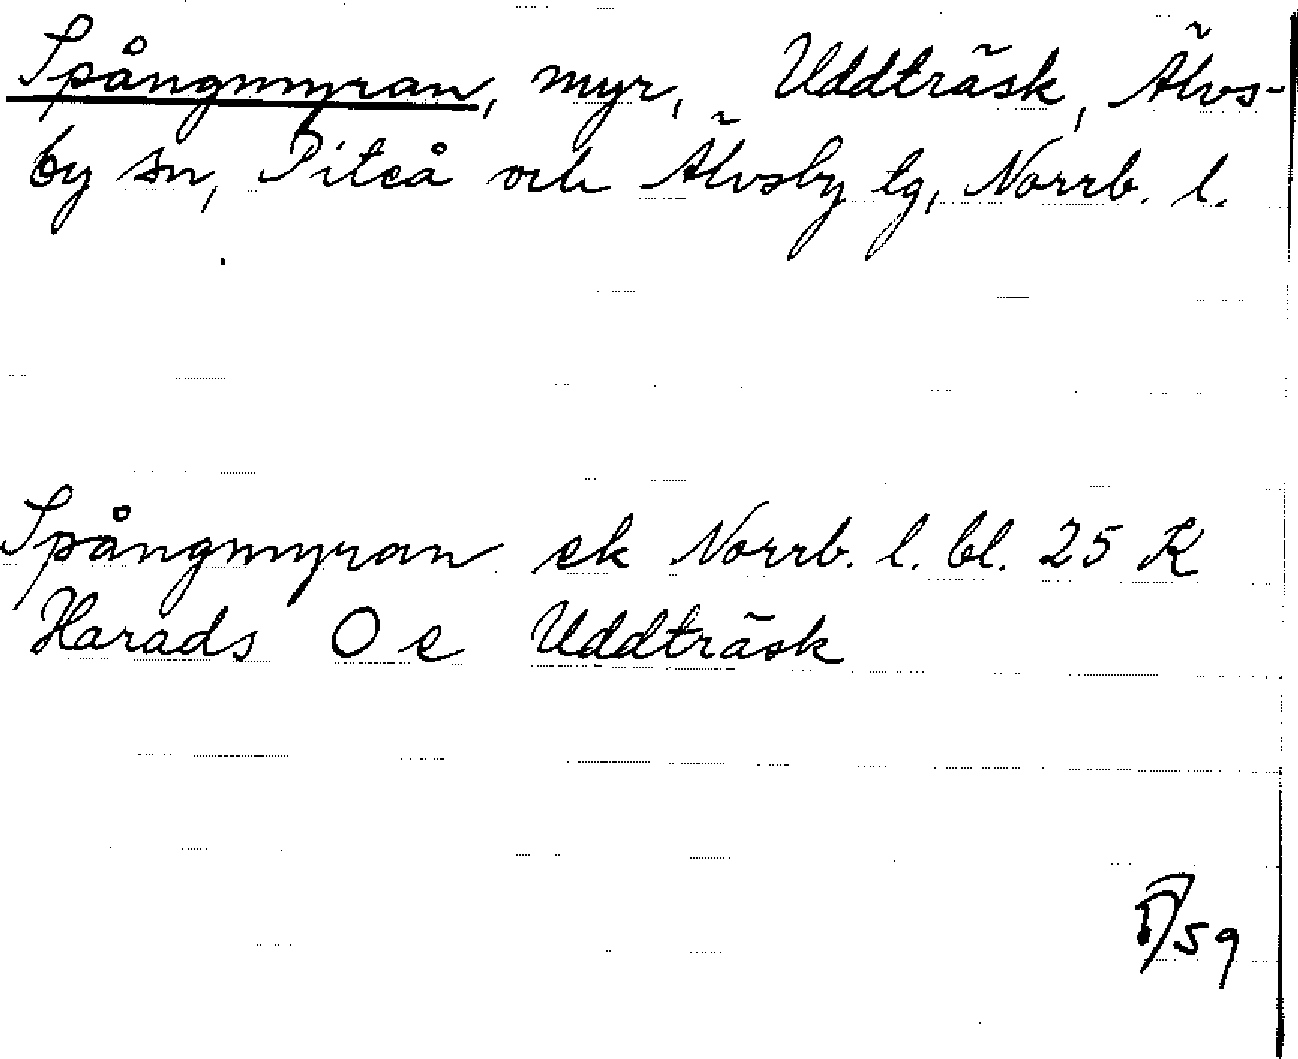 Spångmyran, myr, Uddträsk, Älvs-
by sn, Piteå och Älvsby tg, Norrb. l.
Spångmyran ek Norrb. l. bl. 25 K
Harads O e Uddträsk
/59